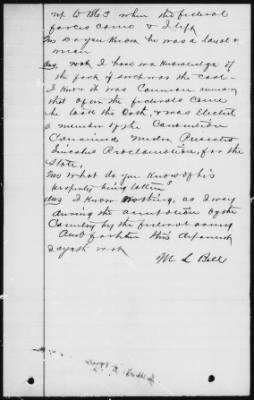 up to 1863 when the federal
forces came & I left
Do you know he was a loyal
man
Ans Not I have no knowledge of
the fact if such was the case
I know it was common rumor
that after the federals came
he took the oath, & was elected
a member of the Convention
Convened under President
Lincolns Proclamation, for the
State,
What do you know of his
property being taken
Ans I know nothing, as I was
during the occupation of the
Country by the federal army
And further this deponent
sayeth not
M L Bell